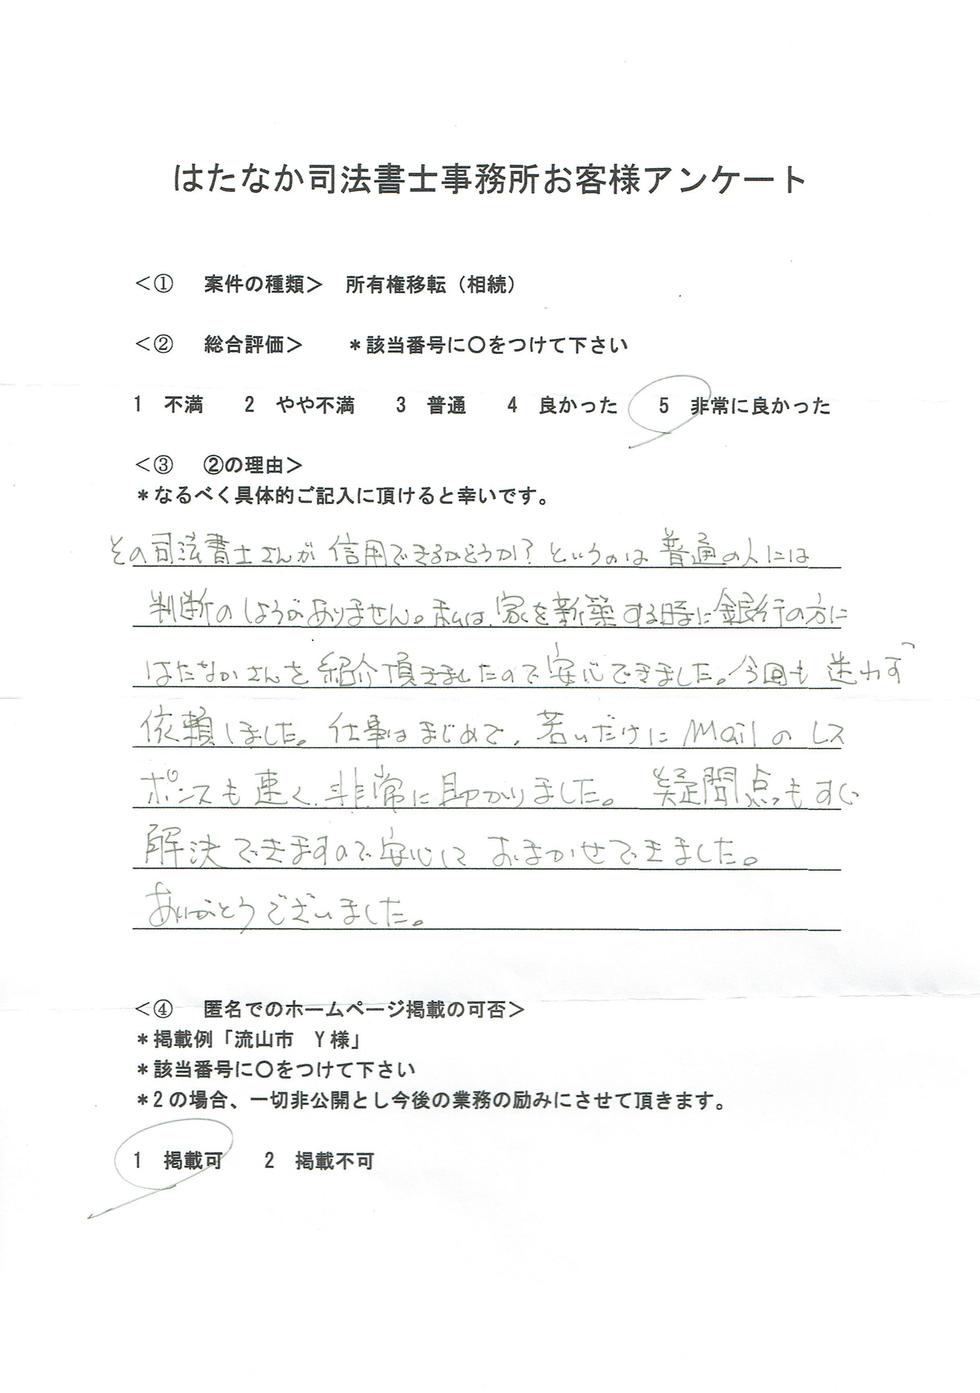 はたなか司法書士事務所お客様アンケート
＜①　案件の種類＞　所有権移転（相続）
＜②　総合評価＞　　＊該当番号に〇をつけて下さい
1　不満　　2　やや不満　　3　普通　　4　良かった　　5　非常に良かった
＜③　②の理由＞
＊なるべく具体的ご記入に頂けると幸いです。
その司法書士さんが信用できるかどうか？というのは普通の人には
判断のしようがありません。私は、家を新築する時に銀行の方に
はたなかさんを紹介頂きましたので安心できました。今回も迷わず
依頼しました。仕事はまじめで、若いだけにMailのレス
ポンスも速く、非常に助かりました。疑問点もすぐ
解決できますので安心しておまかせできました。
ありがとうございました。
＜④　匿名でのホームページ掲載の可否＞
＊掲載例「流山市　Y様」
＊該当番号に〇をつけて下さい
＊2の場合、一切非公開とし今後の業務の励みにさせて頂きます。
1　掲載可　　2　掲載不可